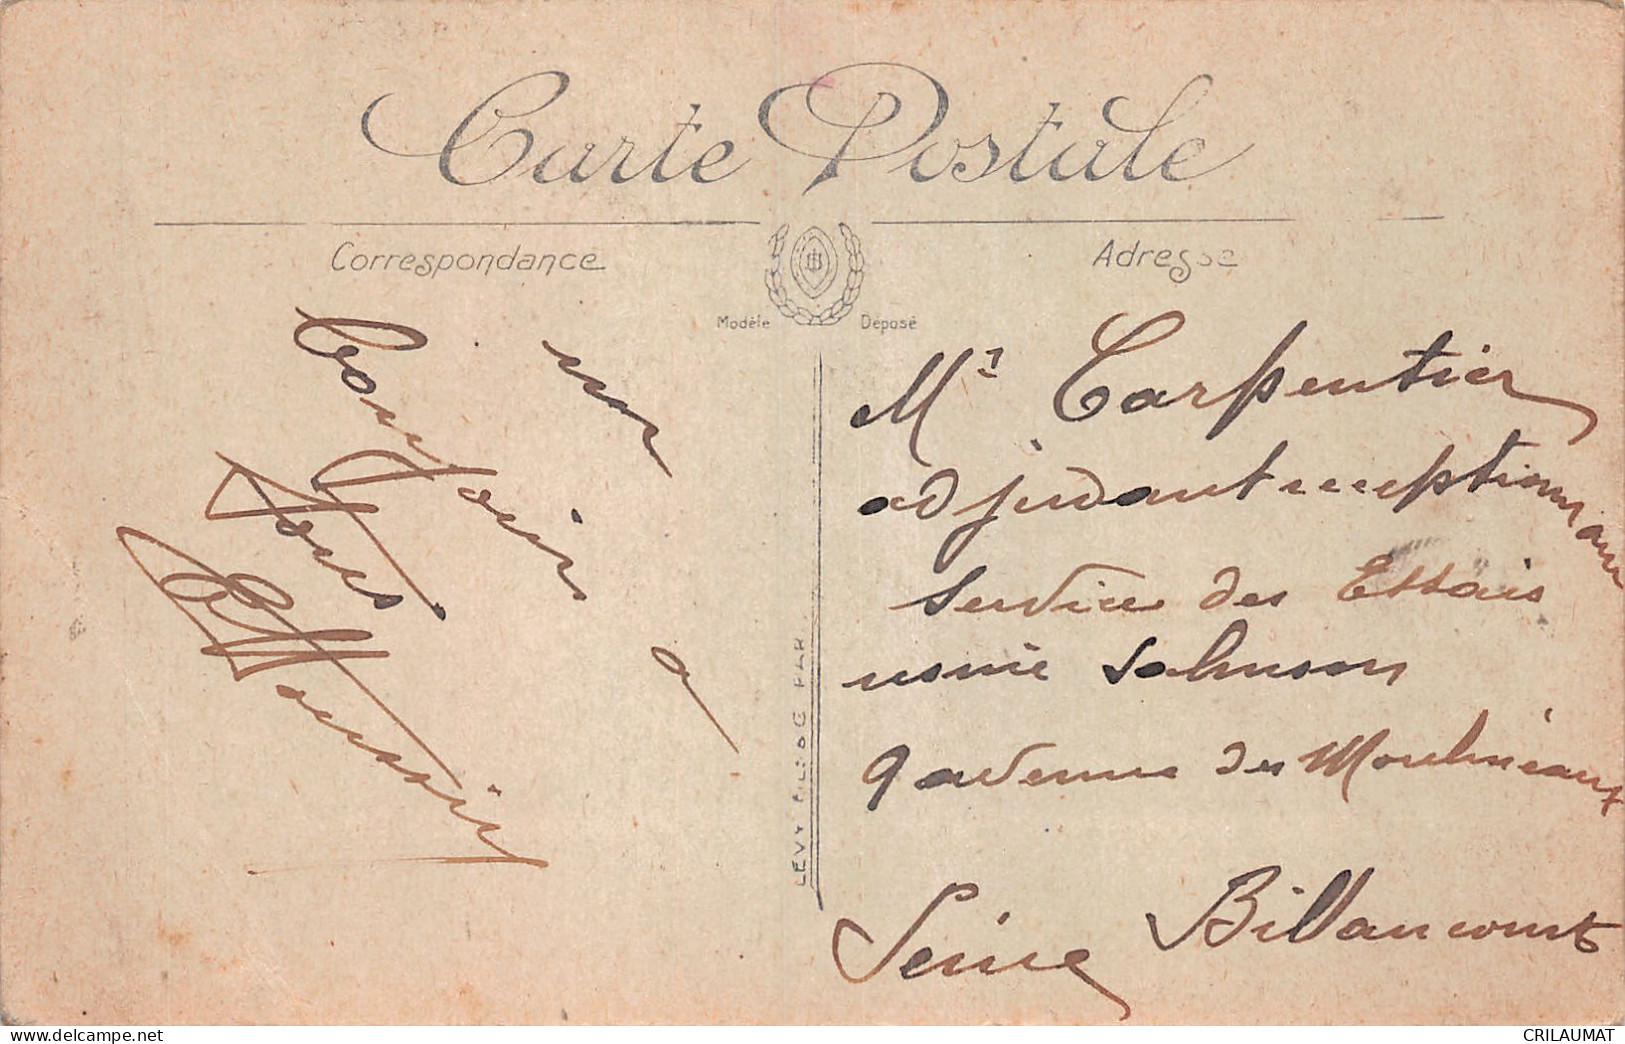 Carte Postale
Correspondance
Adresse
Modèle Déposé
un
bonjour à
tous
LÉVY FILS & C PAR
Mr Carpentier
adjudant receptionnaire
Service des Essais
usine Salmson
9 avenue des Moulineaux
Billancourt
Seine
www.delcampe.net
CRILAUMAT